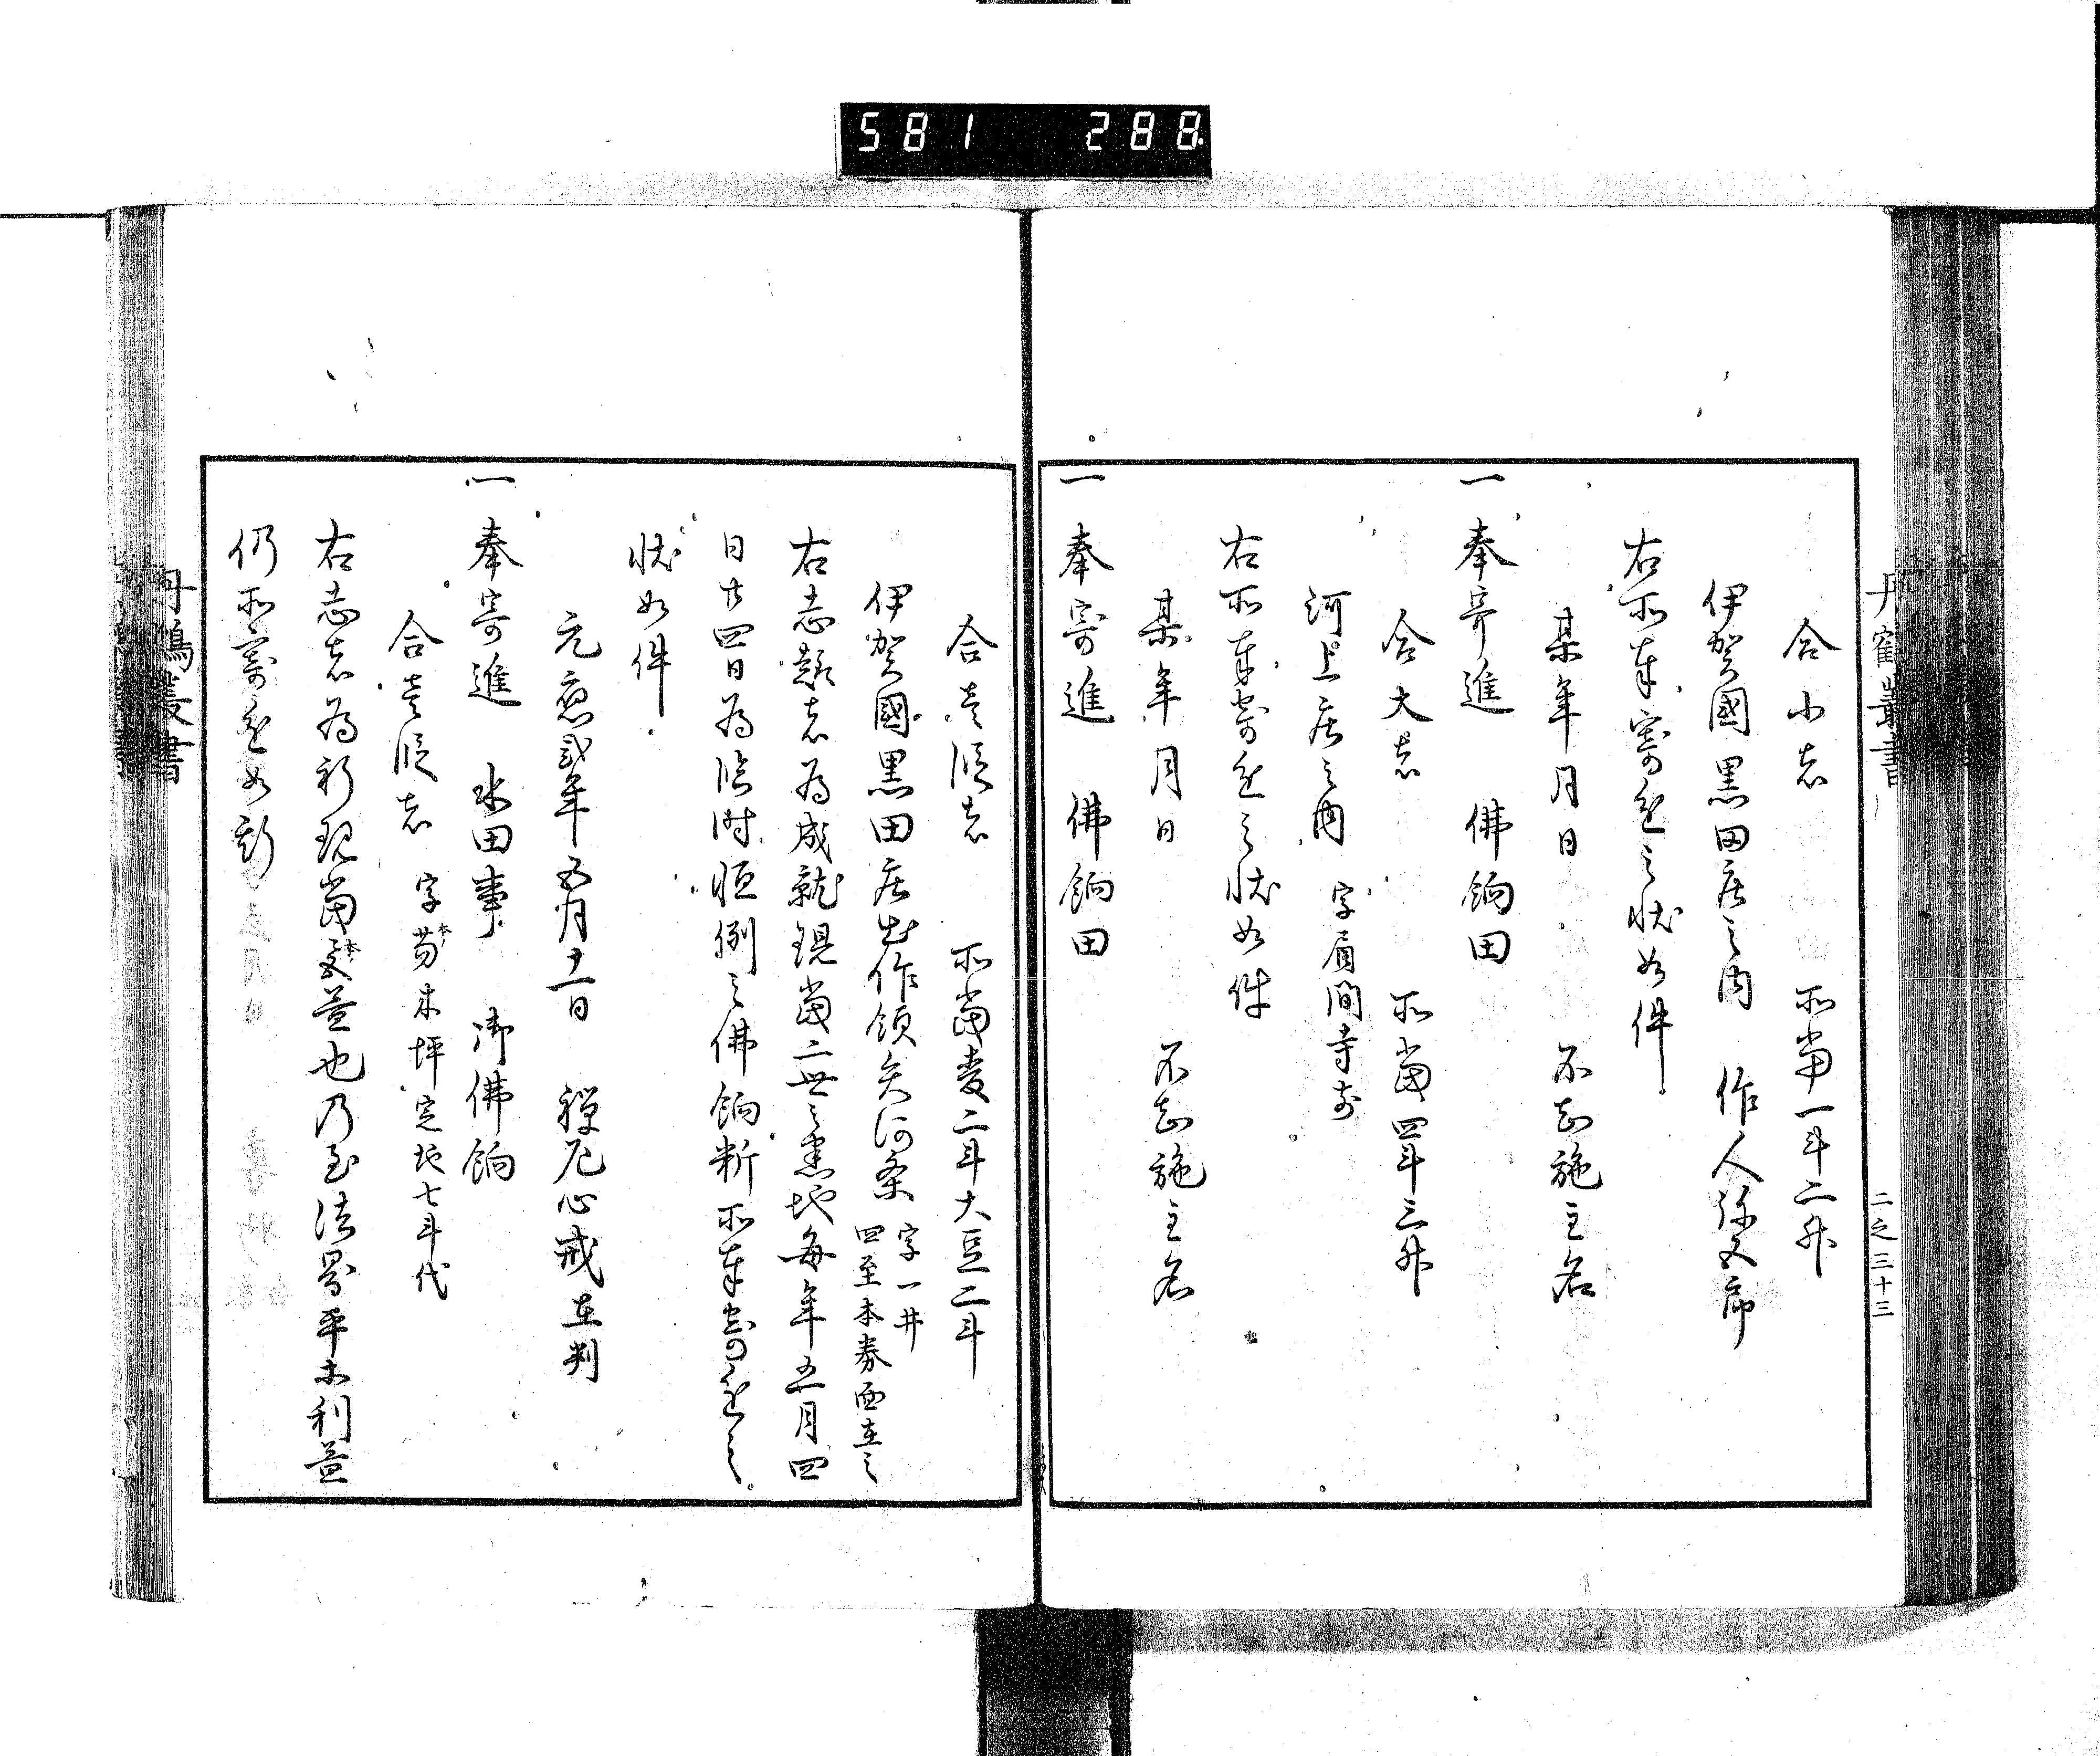 581 288
丹鶴叢書
二之三十三
合小者 所當一斗二升
伊賀國黒田庄之内 作人弥五郎
右所奉寄進之状如件
某年月日 不知施主名
一奉寄進 佛餉田
合大者 所當四斗三升
河上庄之内 字眉間寺前
右所奉寄進之状如件
某年月日 不知施主名
一奉寄進 佛餉田
合壹段者 所當麦二斗大豆二斗
伊賀國黒田庄出作領矢河条 字一井
四至本券面在之
右志趣者為成就現當二世之悉地毎年五月四
日廿四日為臨時恒例之佛餉料所奉寄進之
状如件
元應貳年五月十一日 禅尼心戒在判
一奉寄進 水田事 御佛餉
合壹段者 字 木坪定地七斗代
右志者為祈現當 益也乃至法界平等利益
仍所寄進如斯
丹鶴叢書